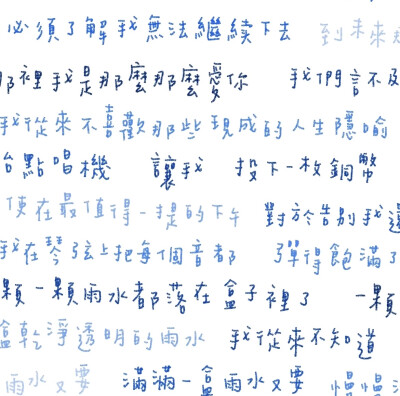 必須了解我無法繼續下去 到未來
那裡我是那麼那麼愛你 我們言不及
我從來不喜歡那些現成的人生隱喻
台點唱機 讓我 投下一枚銅幣
便在最值得一提的下午 對於告別我還
我在琴弦上把每個音都 彈得飽滿了
顆一顆雨水都落在盒子裡了 一顆
盒乾淨透明的雨水 我從來不知道
雨水又要 滿滿一盒雨水又要 慢慢